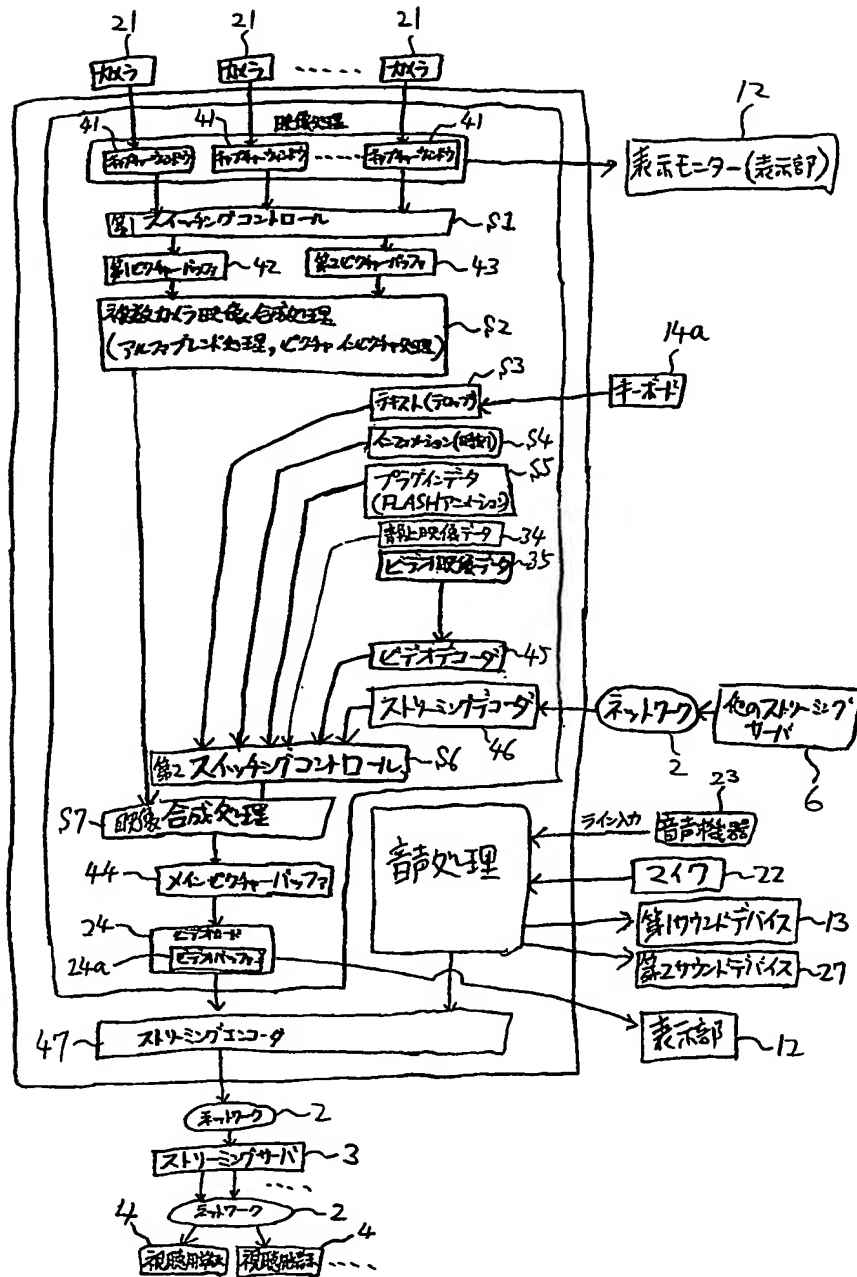 21 21 21
カメラ カメラ ..... カメラ
映像処理
12
41 41 41
キャプチャーウィンドウ キャプチャーウィンドウ ...... キャプチャーウィンドウ
表示モニター(表示部)
第1スイッチングコントロール
S1
第1ピクチャーバッファ 42 第2ピクチャーバッファ 43
複数カメラ映像合成処理
(アルファブレンド処理,ピクチャインピクチャ処理)
S2
14a
S3
テキスト(テロップ)
キーボード
インフォメーション(時刻) S4
プラグインデータ
(FLASHアニメーション)
S5
静止映像データ 34
ビデオ映像データ 35
ビデオデコーダ 45
ストリーミングデコーダ
46
ネットワーク
2
他のストリーミング
サーバ
6
第2スイッチングコントロール S6
S7 映像合成処理
23
ライン入力 音声機器
音声処理
マイク 22
44 メインピクチャーバッファ
第1サウンドデバイス 13
24 ビデオカード
24a ビデオバッファ
第2サウンドデバイス 27
表示部 12
47 ストリーミングエンコーダ
ネットワーク 2
ストリーミングサーバ 3
.....
ネットワーク 2
4 4
視聴用端末 視聴用端末 .....